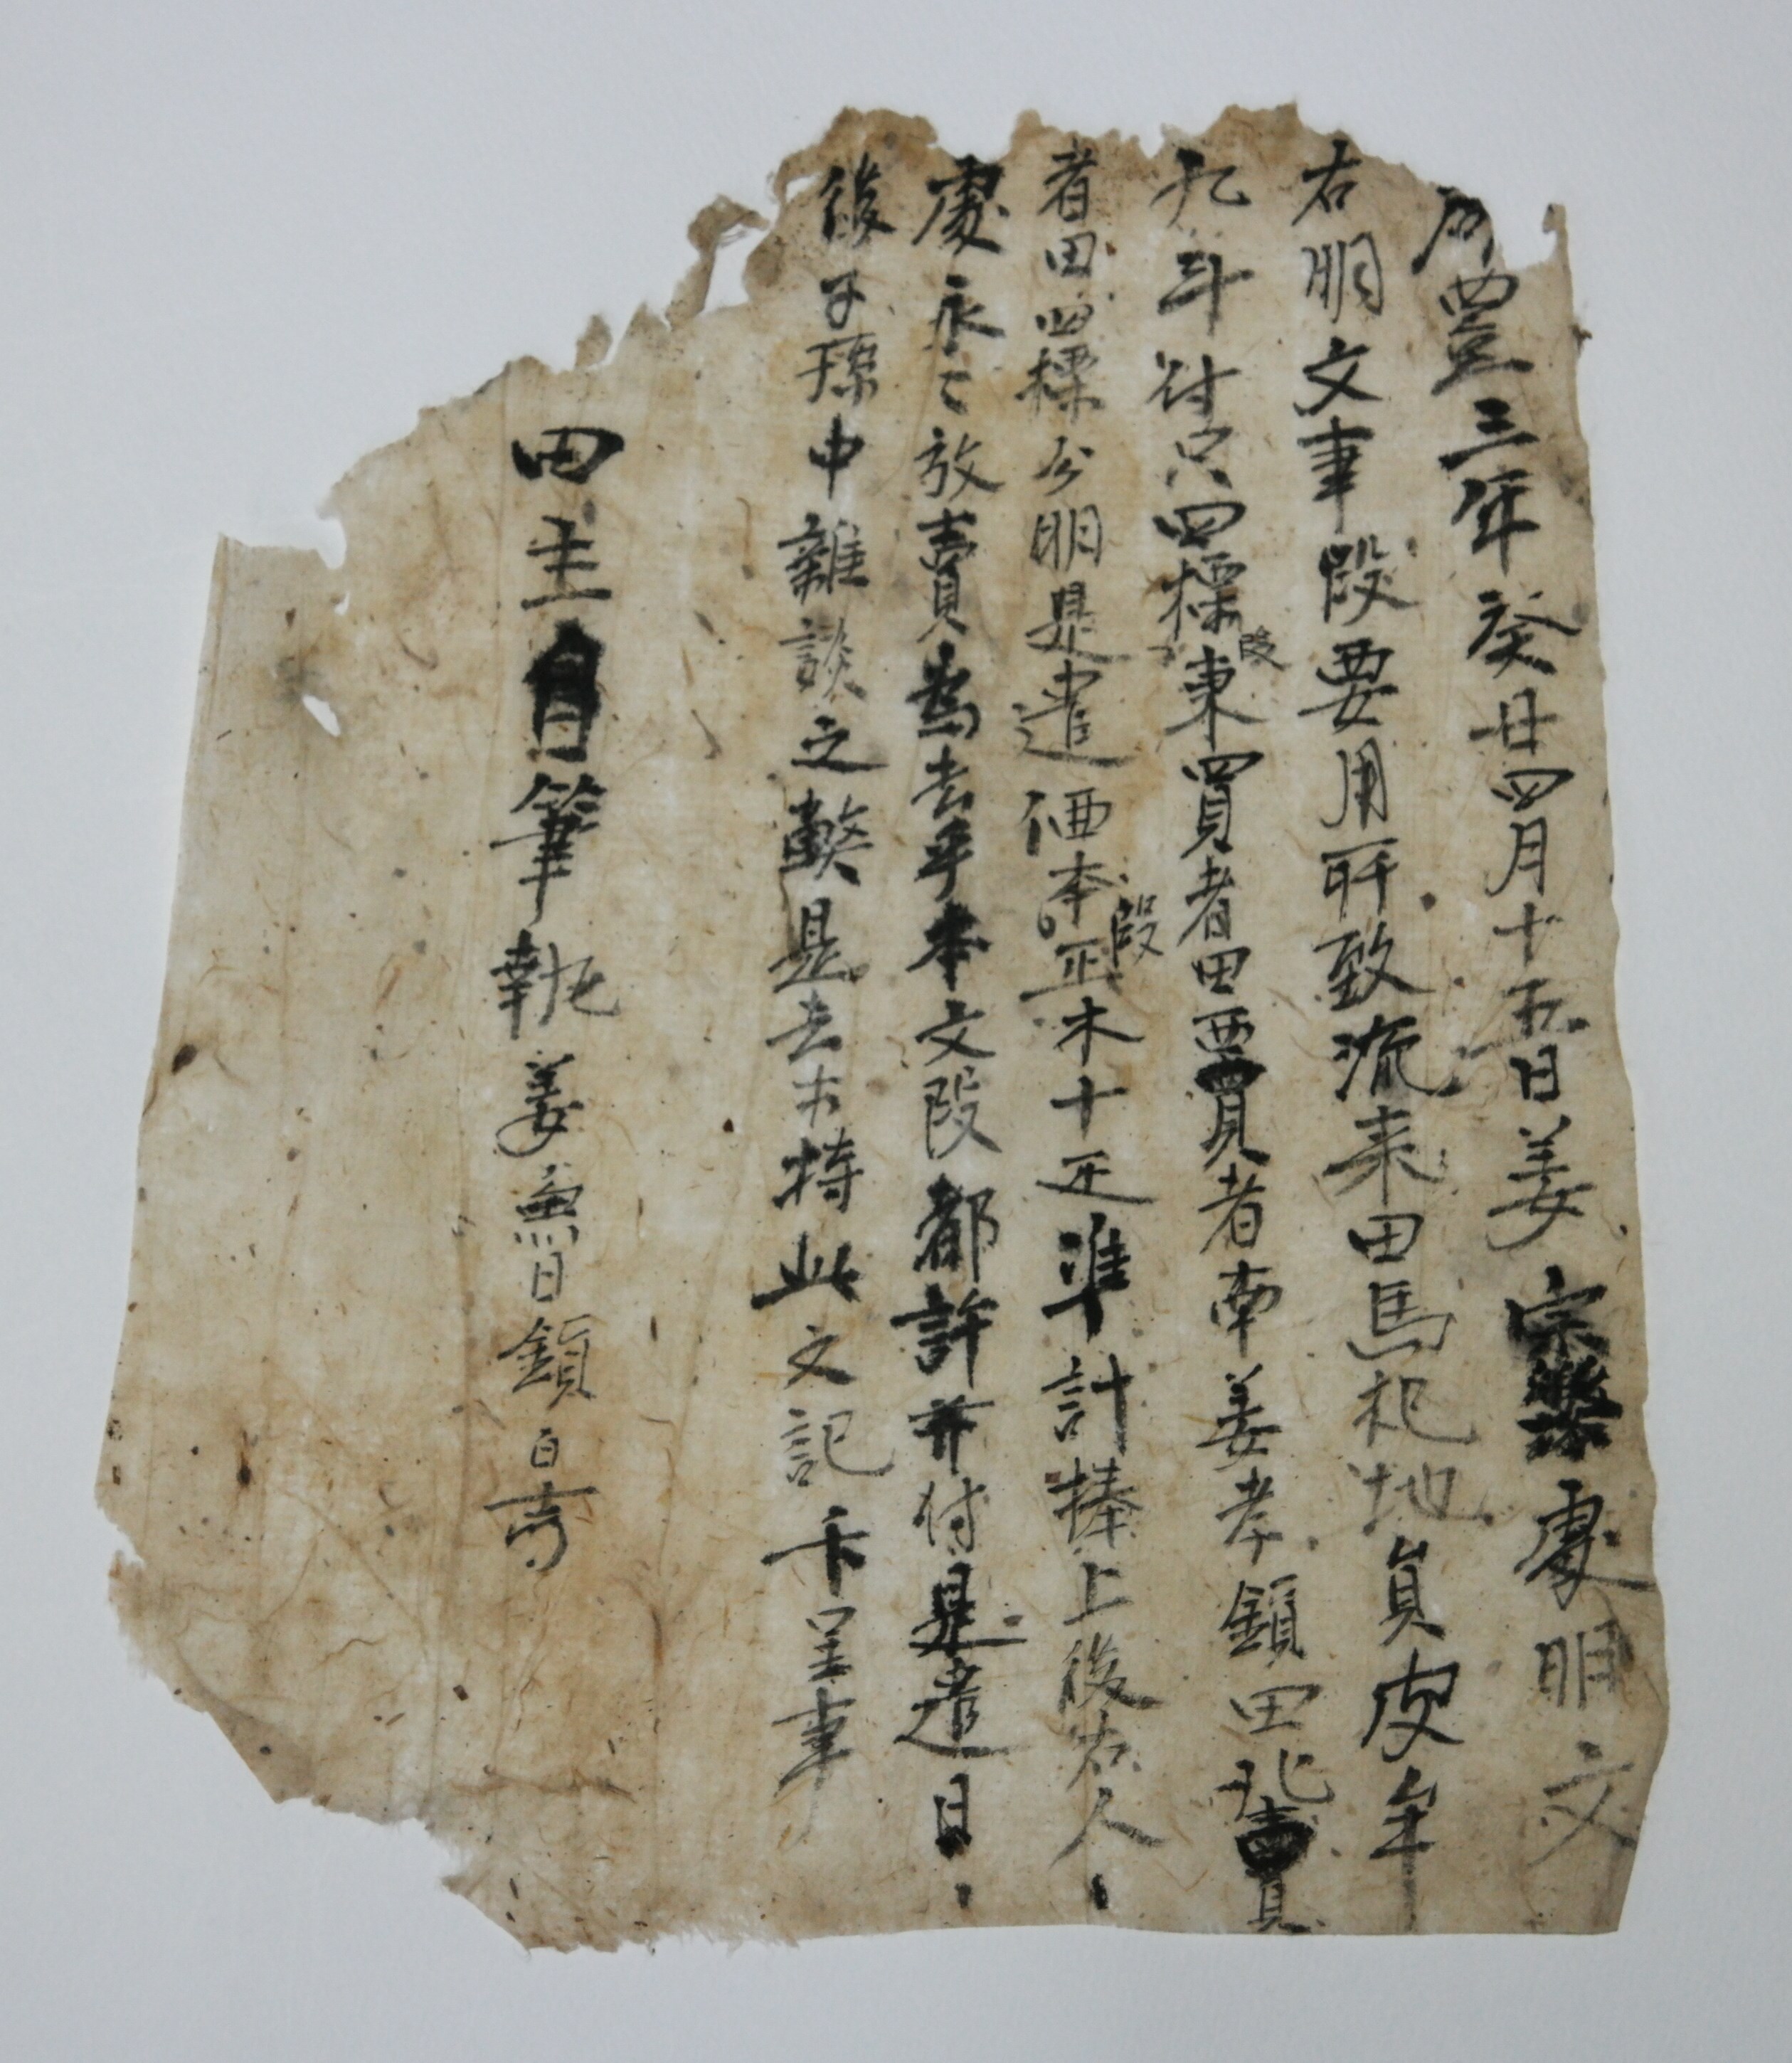 咸豐三年癸丑四月十五日姜宗㵢處明文
右明文事段要用所致流来田馬杞地員皮牟
九斗付只四標段東買者田西買者南姜孝鎮田北賣
者田四標分明是遣価本段正木十疋準計捧上後右人、
處永〻放賣為去乎本文段都許並付是遣日、
後子孫中雜談之弊是去ホ持此文記卞呈事
田主自筆執姜鎮白